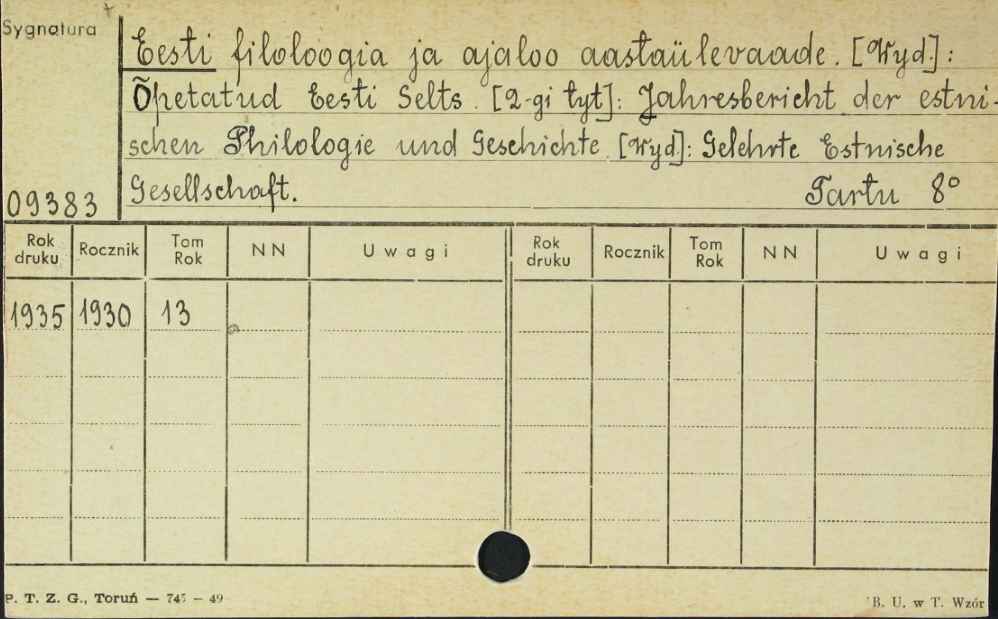 Sygnatura
Eesti filoloogia ja ajaloo aastaülevaade. [Wyd.]:
Õpetatud Eesti Selts. [2-gi tyt]: Jahresbericht der estni-
schen Philologie und Geschichte. [Wyd]: Gelehrte Estnische
09383 Gesellschaft. Tartu 8°
Rok druku Rocznik Tom Rok NN Uwagi Rok druku Rocznik Tom Rok NN Uwagi
1935 1930 13
P. T. Z. G., Toruń — 745 — 49 B. U. w T. Wzór